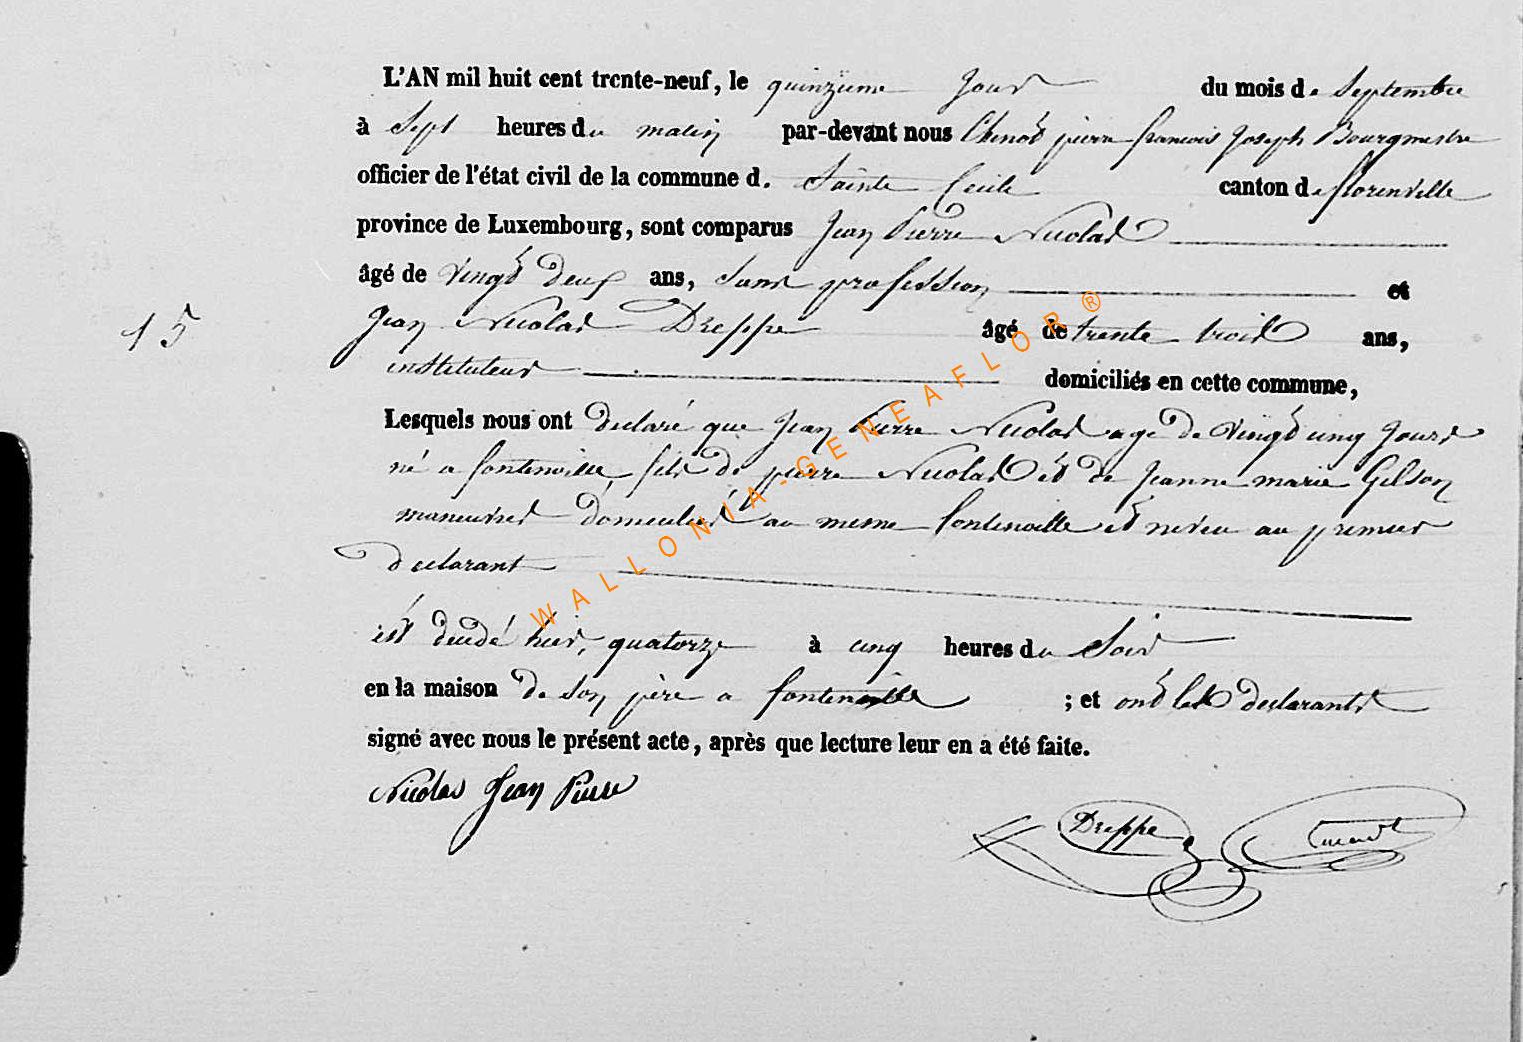 L'AN mil huit cent trente-neuf, le quinzieme jour du mois de Septembre
à Sept heures du matin par-devant nous Chenot pierre francois Joseph Bourgmestre
officier de l'état civil de la commune d. Sainte Cecile canton de florenville
province de Luxembourg, sont comparus Jean Pierre Nicolas
âgé de vingt deux ans, sans profession et
15
Jean Nicolas Dreppe âgé de trente trois ans,
instituteur domiciliés en cette commune,
Lesquels nous ont declaré que Jean Pierre Nicolas agé de vingt cinq jours
né a fontenoille fils de pierre Nicolas et de Jeanne marie Gilson
maneuvres domicilies au meme fontenoille et neveu au premier
declarant
est decedé hier, quatorze à cinq heures du Soir
en la maison de son père a fontenoille ; et ont les declarants
signé avec nous le présent acte, après que lecture leur en a été faite.
Nicolas Jean Pierre
Dreppe
WALLONIA-GENEAFLOR®